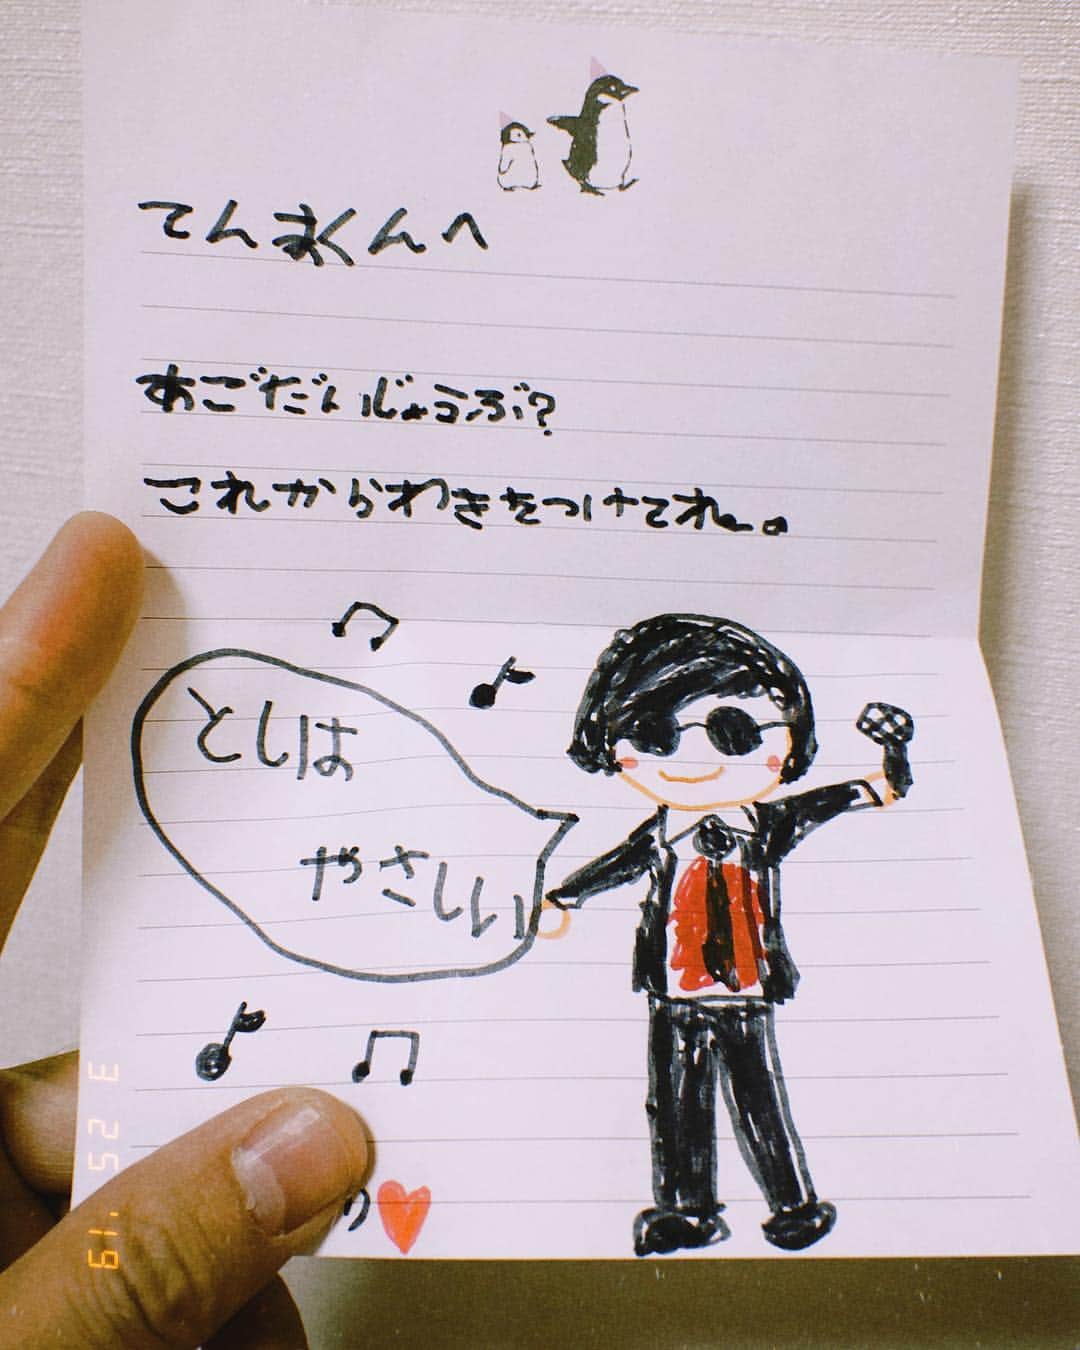 てんまくんへ
あごだいじょうぶ?
これからわきをつけてね。
としは
やさしい
3 25 '19